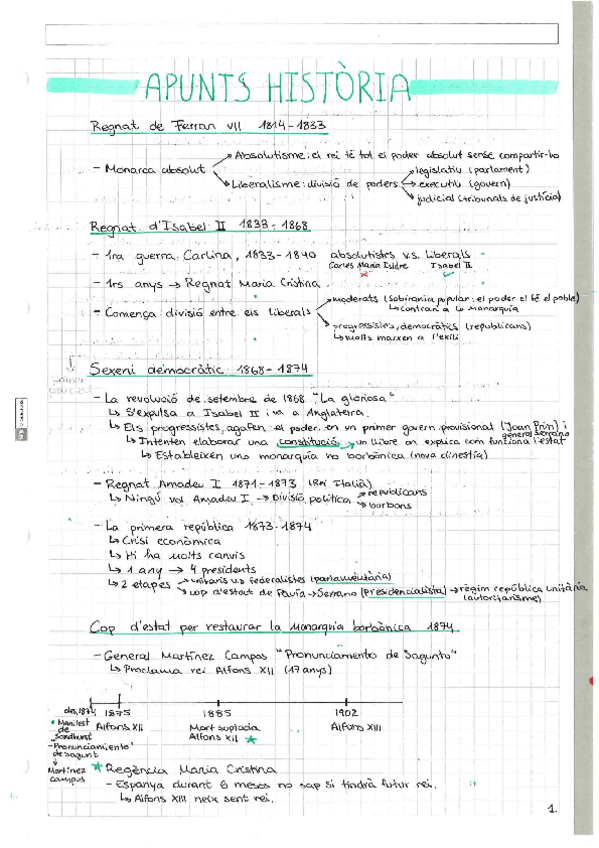 APUNTS HISTÒRIA
Regnat de Ferran VII 1814-1833
- Monarca absolut
Absolutisme: el rei té tot el poder absolut sense compartir-lo
Liberalisme: divisió de poders
legislatiu (parlament)
executiu (govern)
judicial (tribunals de justícia)
Regnat d'Isabel II 1833-1868
- 1ra guerra Carlina, 1833-1840 absolutistes v.s. liberals
Carles Maria Isidre Isabel II
- 1rs anys → Regnat Maria Cristina
- Comença divisió entre els liberals
moderats (sobirania popular: el poder el té el poble)
↳ contrari a la monarquia
progressistes, democràtics (republicans)
↳ molts marxen a l'exili
Sexeni democràtic 1868-1874
- La revolució de setembre de 1868 "La gloriosa"
↳ S'expulsa a Isabel II i va a Anglaterra.
↳ Els progressistes, agafen el poder en un primer govern provisional (Joan Prim) i
general Serrano
↳ Intenten elaborar una constitució → un llibre on explica com funciona l'estat
↳ Estableixen una monarquia no borbònica (nova dinestia)
- Regnat Amadeu I 1871-1873 (Rei Italià)
↳ Ningú vol Amadeu I → Divisió política
republicans
borbons
- La primera república 1873-1874
↳ Crisi econòmica
↳ Hi ha molts canvis
↳ 1 any → 4 presidents
↳ 2 etapes
unitaris v.s federalistes (parlamentària)
cop d'estat de Pavía → Serrano (presidencialista) → règim república unitària
(autoritarisme)
Cop d'estat per restaurar la Monarquia borbònica 1874
- General Martínez Campos "Pronunciamento de Sagunto"
↳ Proclama rei Alfons XII (17 anys)
des, 1874 1875 1885 1902
• Manifest de Sandhurst
Alfons XII
Mort suplada Alfons XII ★
Alfons XIII
- Pronunciamiento de sagunt
↓
Martínez campos
★ Regència Maria Cristina
- Espanya durant 6 mesos no sap si tindrà futur rei.
↳ Alfons XIII neix sent rei.
1.